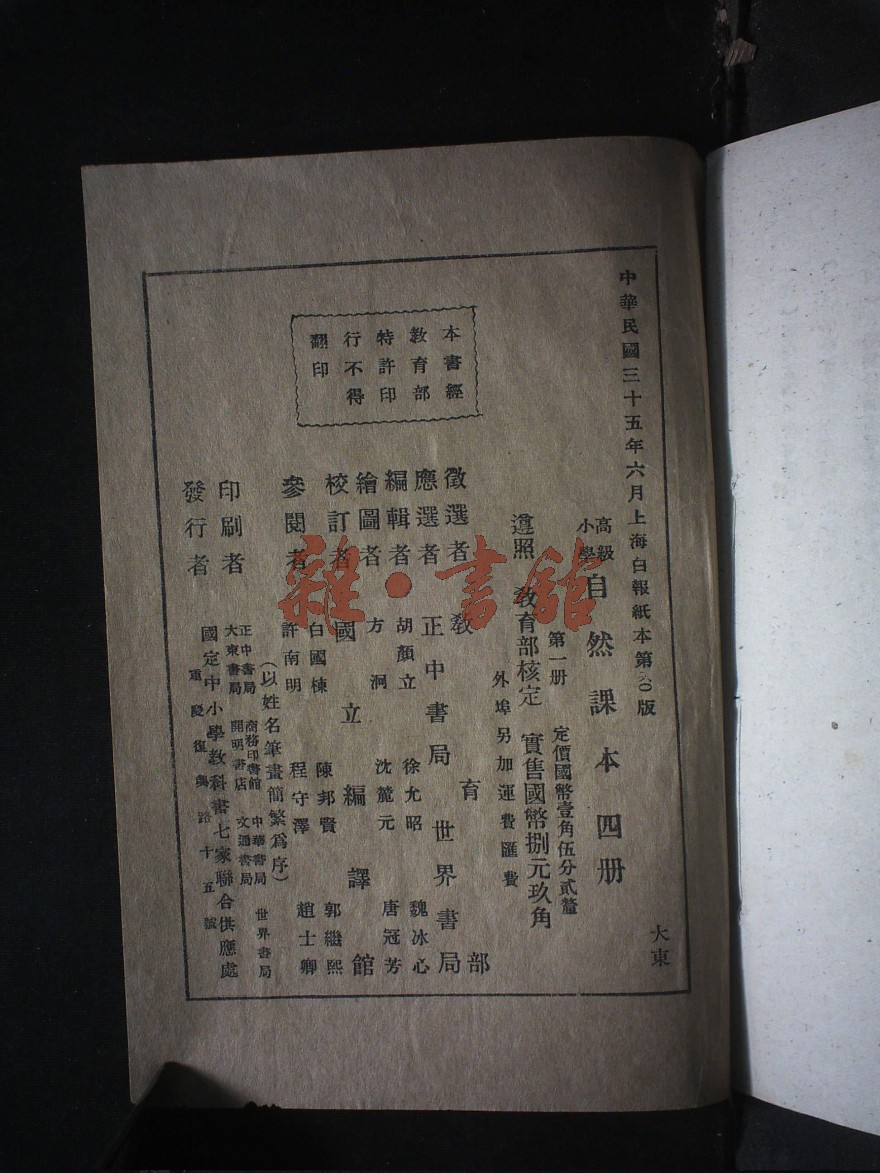 中華民國三十五年六月上海白報紙本第六〇版
大東
高級
小學
自然課本四册
第一册 定價國幣壹角伍分貳釐
遵照教育部核定 實售國幣捌元玖角
外埠另加運費匯費
徵選者 教育部
應選者 正中書局 世界書局
編輯者 胡顏立 徐允昭 魏冰心
繪圖者 方洞 沈麓元 唐冠芳
校訂者 國立編譯館
參閱者 白國棟 陳邦賢 郭繼熙
許南明 程守澤 趙士卿
(以姓名筆畫簡繁爲序)
印刷者 正中書局 商務印書館 中華書局 世界書局
大東書局 開明書店 文通書局
發行者 國定中小學教科書七家聯合供應處
重慶復興路十五號
本書經
教育部
特許印
行不得
翻印
雜·書館